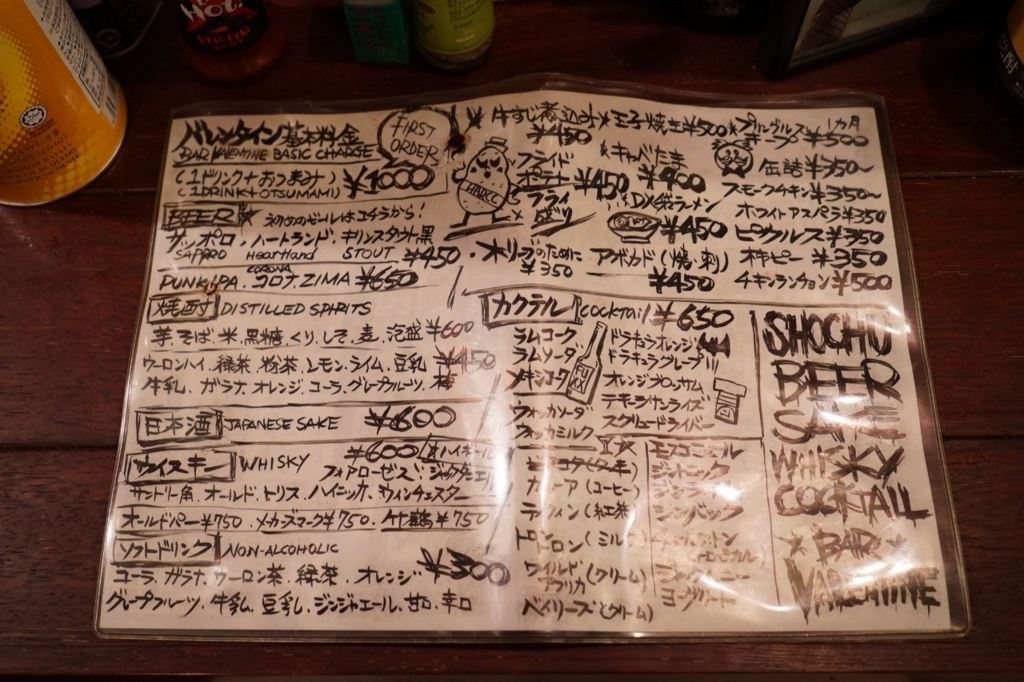 HOT!
バレンタイン基本料金
BAR VALENTINE BASIC CHARGE
(1ドリンク+おつまみ) ¥1000
(1DRINK+OTSUMAMI)
FIRST
ORDER
BEER★ 初めのビールはコチラから!
サッポロ、ハートランド、キリンスタウト黒
SAPPORO HeartLand STOUT ¥450
CORONA
PUNK IPA. コロナ. ZIMA ¥650
焼酎 DISTILLED SPIRITS
芋.そば.米.黒糖.くり.しそ.麦.泡盛 ¥600
ウーロンハイ.緑茶.粉茶.レモン.ライム.豆乳 ¥450
牛乳.ガラナ.オレンジ.コーラ.グレープフルーツ.梅
日本酒 JAPANESE SAKE ¥600
ウイスキー WHISKY ¥600/ハイボール
フォアローゼズ.ジャックダニエル
サントリー角.オールド.トリス.ハイニッカ.ウィンチェスター
オールドパー¥750.メーカーズマーク¥750.竹鶴¥750
ソフトドリンク NON-ALCOHOLIC
コーラ.ガラナ.ウーロン茶.緑茶.オレンジ ¥300
グレープフルーツ.牛乳.豆乳.ジンジャエール.甘口.辛口
牛すじ煮込み ¥450
玉子焼き¥500
プリングルス 1カ月
キープ ¥500
HARCC
フライド
ポテト ¥450
キャベたま
¥400
缶詰¥350~
フライ
盛り
DX袋ラーメン
¥450
スモークチキン¥350~
ホワイトアスパラ¥350
ピクルス ¥350
オリーブのために
¥350
アボカド(焼・刺)
¥450
柿ピー ¥350
チキンランチョン ¥500
カクテル COCKTAIL ¥650
ラムコーク
ラムソーダ
メキシコーク
ウォッカソーダ
ウォッカミルク
ドラキュラオレンジ
ドラキュラグレープ
オレンジブロッサム
テキーラサンライズ
スクリュードライバー
カルーア(コーヒー)
ティフィン(紅茶)
ワイルド(クリーム)
アフリカ
ベイリーズ(クリーム)
モスコミュール
ジントニック
ジンライム
ジンバック
SHOCHU
BEER
SAKE
WHISKY
COCKTAIL
★BAR★
VALENTINE